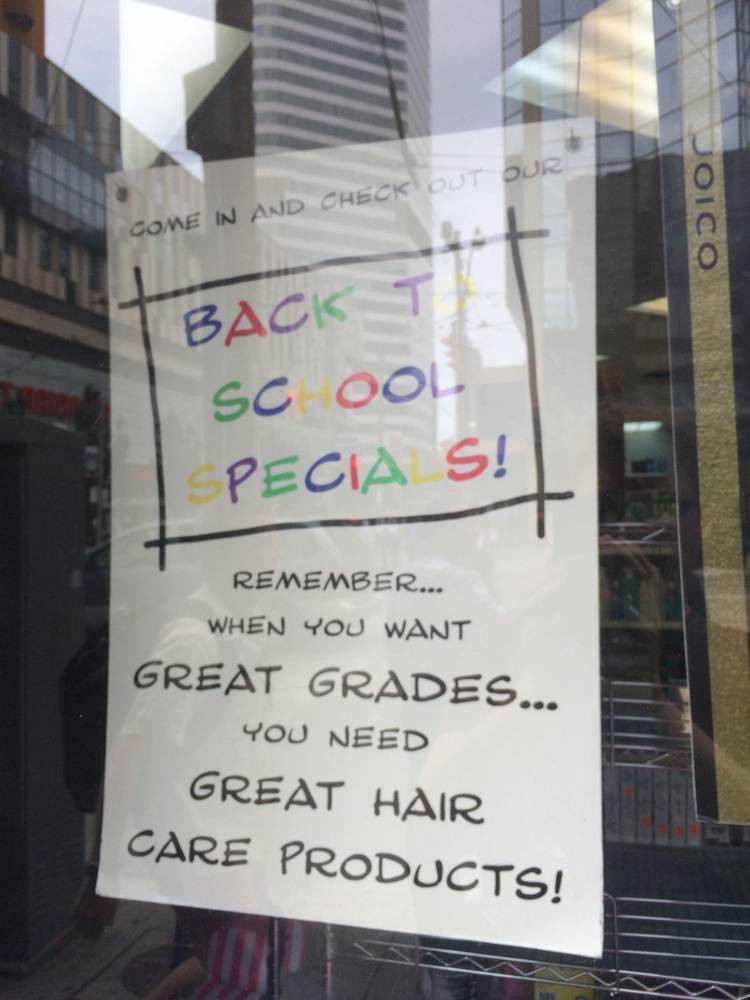 COME IN AND CHECK OUT OUR
BACK TO
SCHOOL
SPECIALS!
REMEMBER...
WHEN YOU WANT
GREAT GRADES...
YOU NEED
GREAT HAIR
CARE PRODUCTS!
JOICO